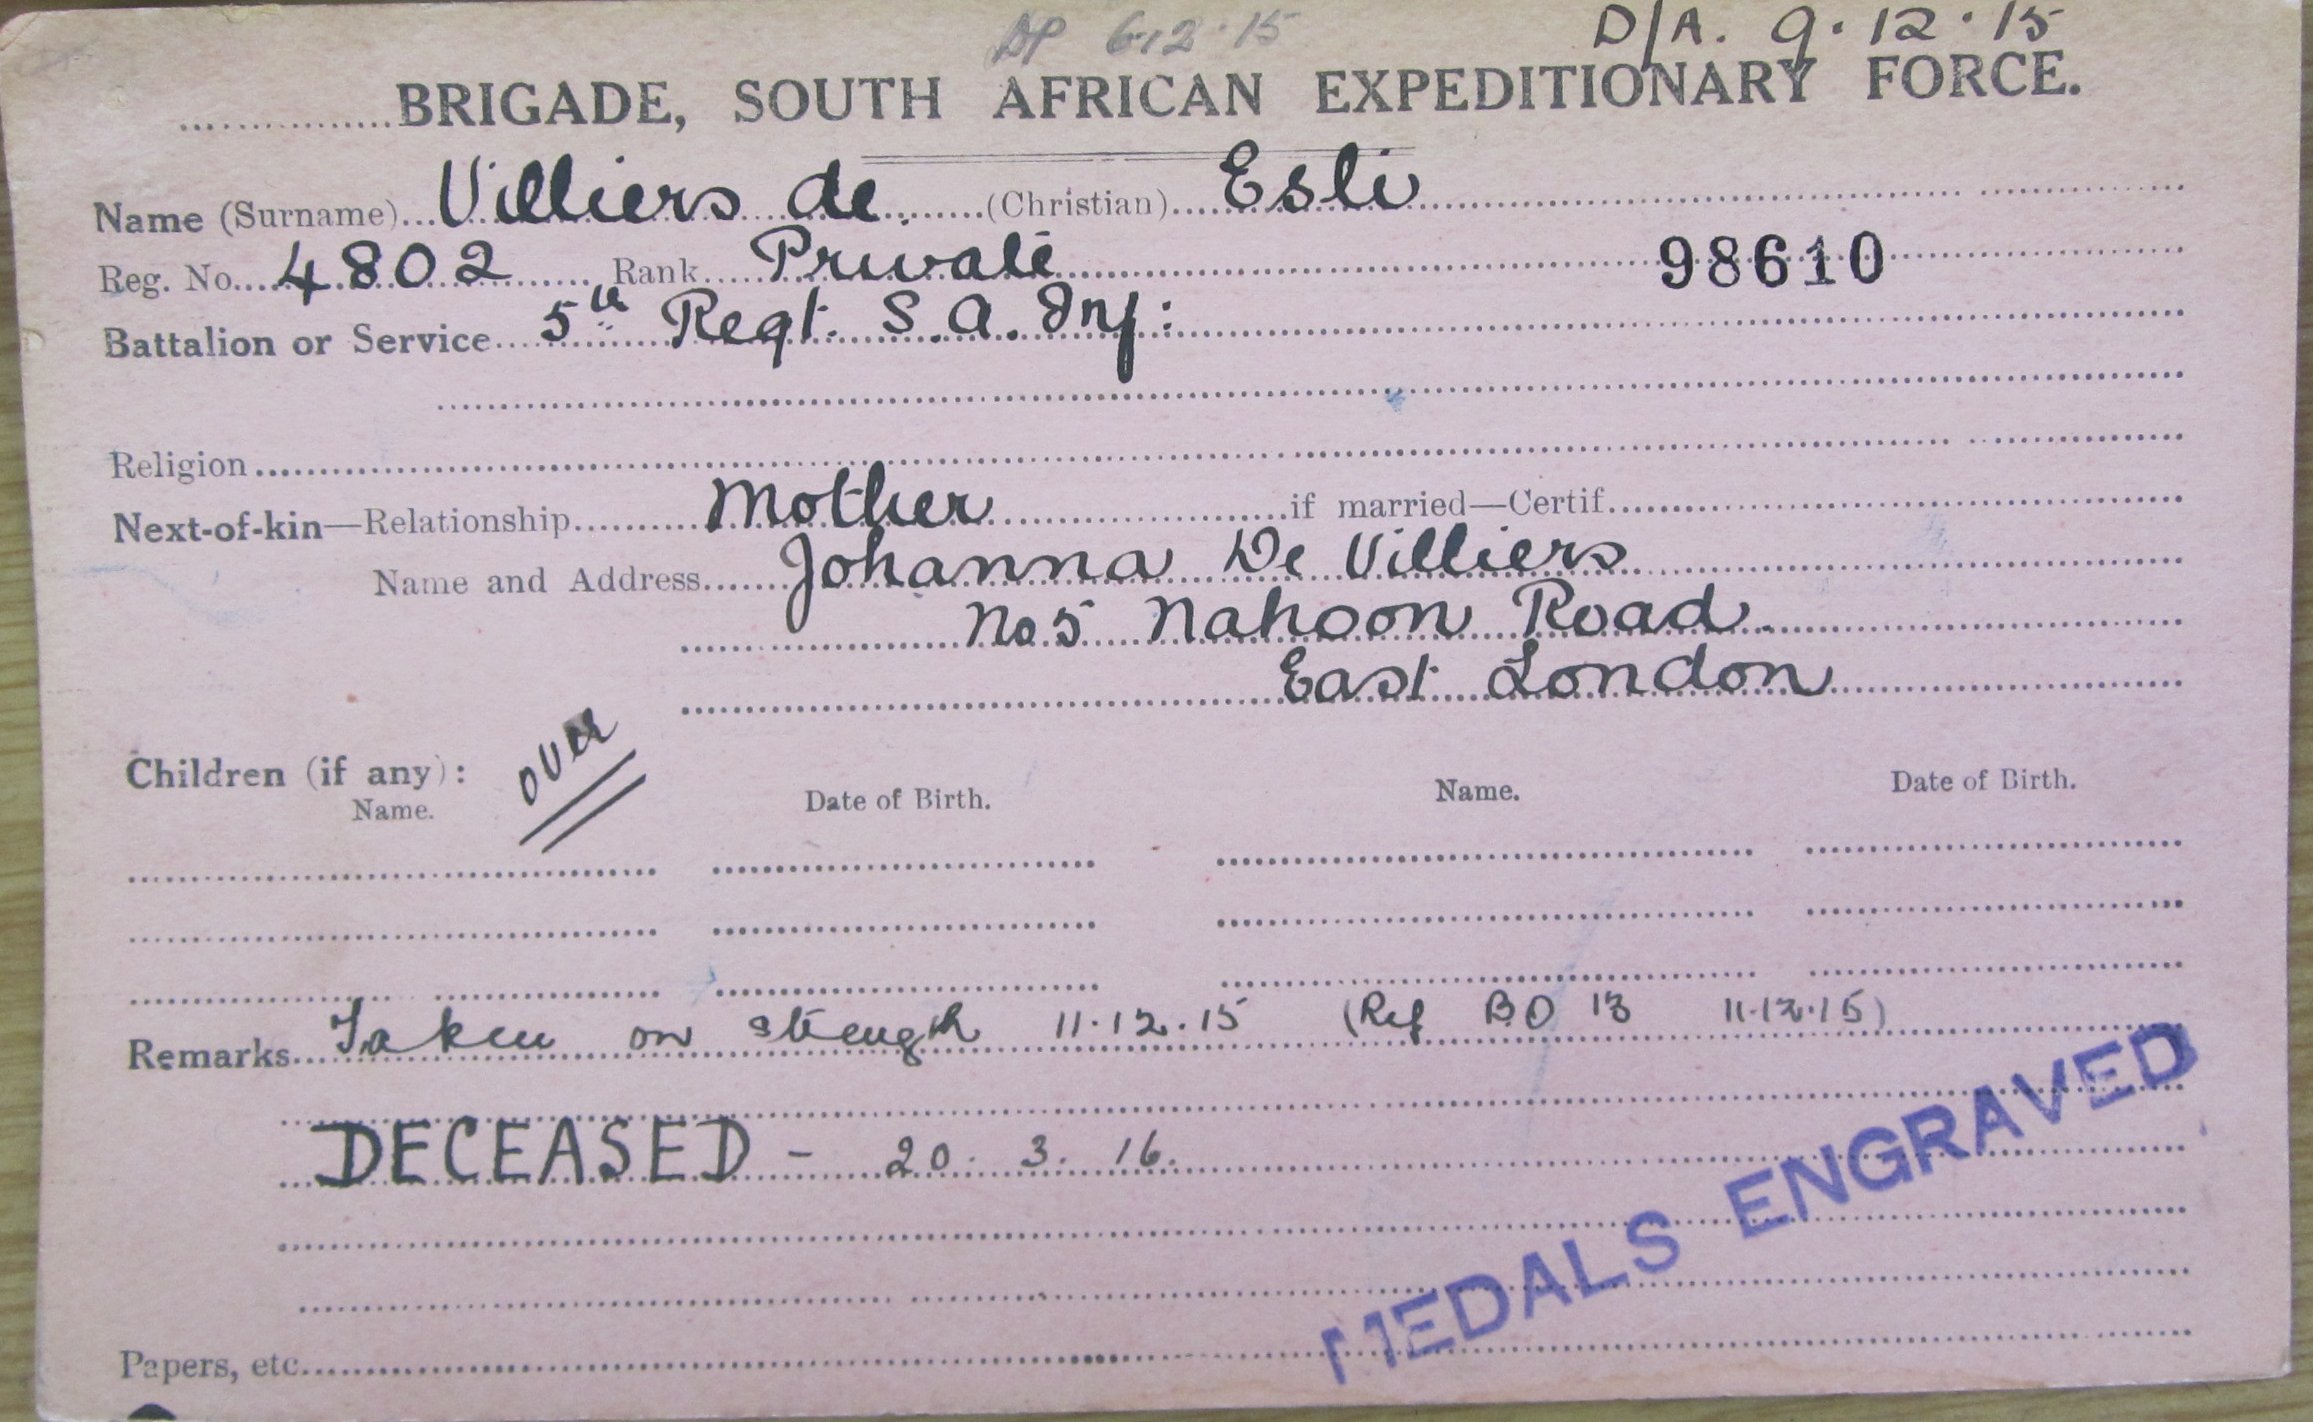 DP 6·12·15 D/A. 9·12·15
BRIGADE, SOUTH AFRICAN EXPEDITIONARY FORCE.
Name (Surname) Villiers de (Christian) Esli
Reg. No. 4802 Rank Private 98610
Battalion or Service 5th Regt. S.A. Inf:
Religion
Next-of-kin—Relationship Mother if married—Certif.
Name and Address Johanna De Villiers
No 5 Nahoon Road.
East London
Children (if any): OVER
Name. Date of Birth. Name. Date of Birth.
Remarks Taken on strength 11·12·15 (Ref B.O 13 11·12·15)
DECEASED - 20. 3. 16.
MEDALS ENGRAVED
Papers, etc.